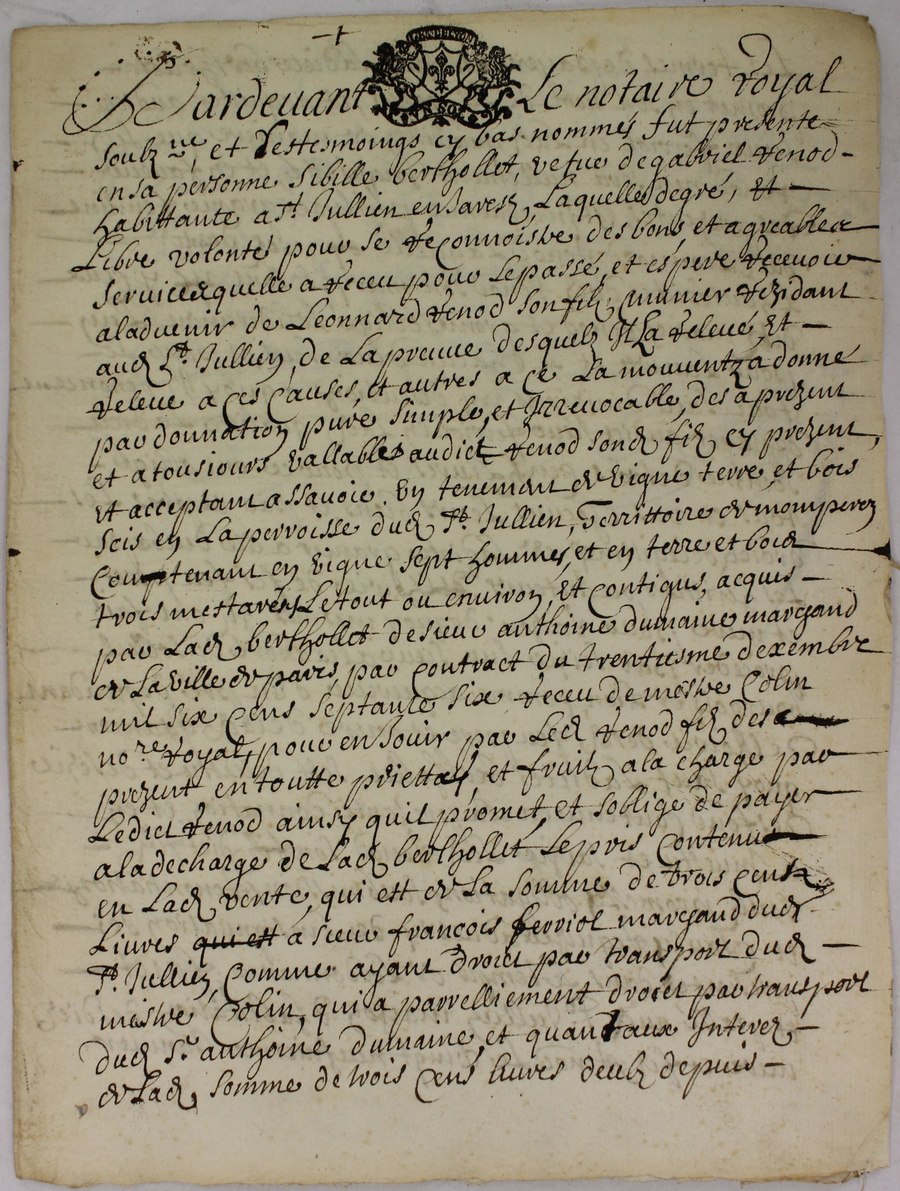 Pardevant Le notaire Royal
soubz.ne, et Testesmoings cy bas nommés fut presente
en sa personne Sibille berthollet, vefve de gabriel Venod
habittante a St. Jullien en Jarest, Laquelle de gré, et
Libre volonté pour se Reconnoistre des bons et agreables
services quelle a Receu pour Le passé, et espere Recevoir
a ladvenir de Leonnard Venod son filz, munier Rezidant
aud. St. Jullien, de La preuve desquelz Il La Relevé, Et
Releve a ces causes, et autres a ce La mouventz a donné
par donnation pure simple, et Irrevocable, des a prezent
et a tousiours vallable audict Venod sond. filz cy prezent,
et acceptant assavoir. Un tenement de vigne terre, et bois
scis en La perroisse dud. St. Jullien, Territtoire de momperez
Comptenant en vigne sept hommes, et en terre et bois
trois mettarés, Le tout ou environ, Et contigus, acquis
par Lad. berthollet de sieur anthoine dumaine marchand
de La ville de paris, par contract du trentiesme dexembre
mil six cens septante six Receu de mestre Colin
nore. Royal, pour en Jouir par Led. Venod filz des a
prezent en toutte et fruitz a la charge par
Ledict Venod ainsy quil promet, et soblige de payer
a la decharge de Lad. berthollet Le pris contenu
en Lad. vente, qui est de La somme de trois cens
Livres qui est à sieur françois ferriol marchand dud.
St. Jullien, Comme ayant droict par transport dud.
mestre Colin, qui a parrelliement droict par transport
dud. Sr. anthoine dumaine, et quant aux Interez
de Lad. somme de trois cens livres deubz depuis